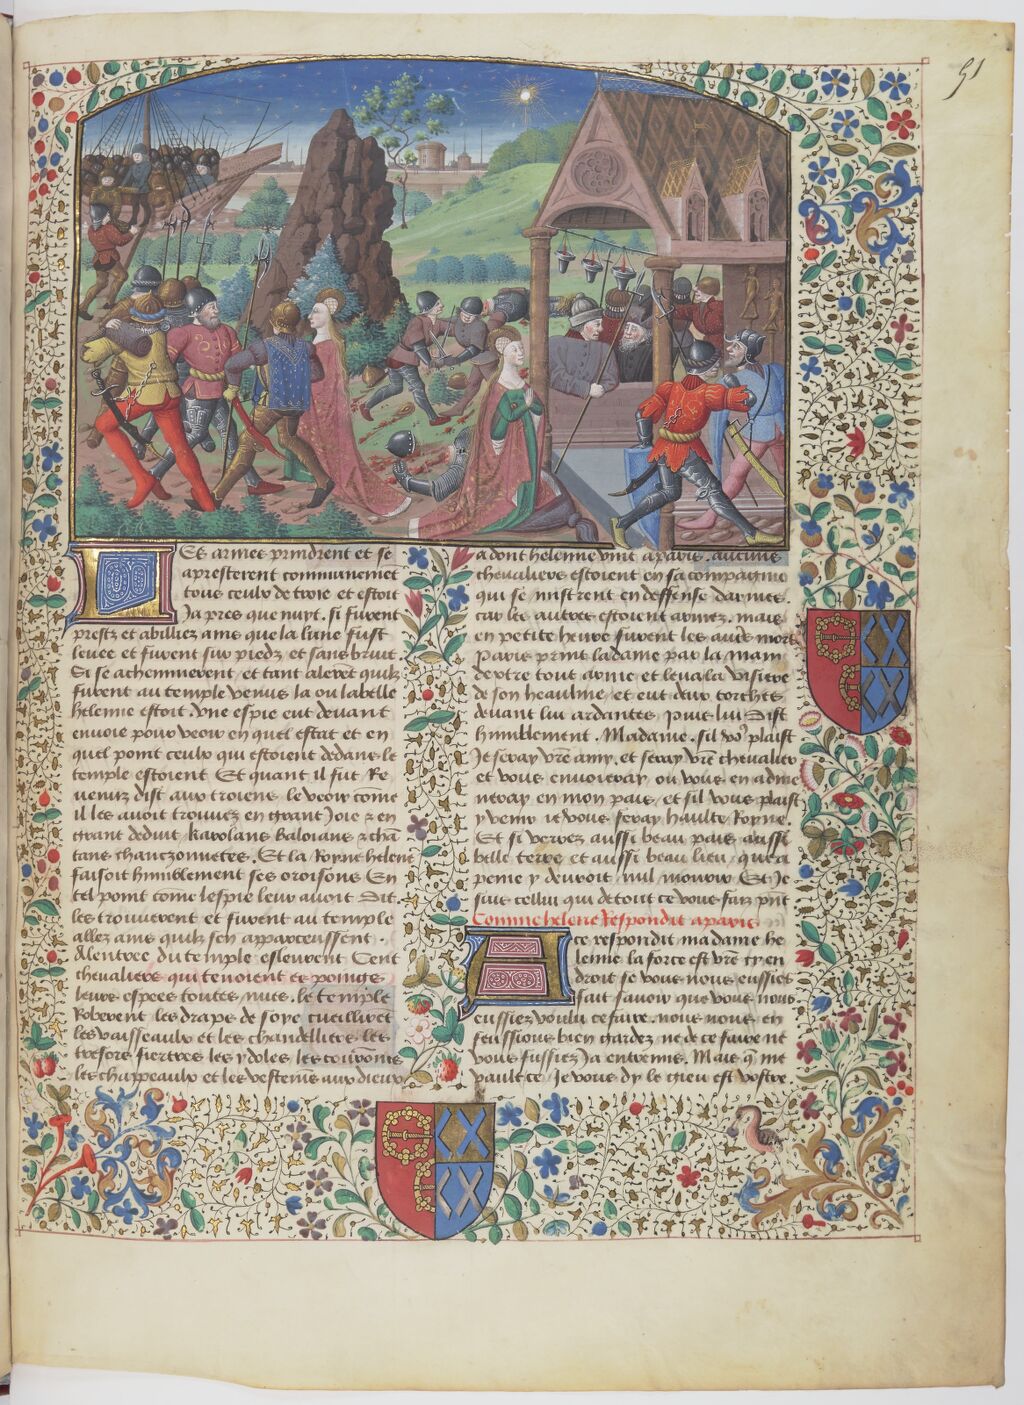 51
Les armes prindrent et se
apresterent communemet
tous ceulx de troie et estoit
Ja pres que nuyt. si furent
prestz et abilliez ains que la lune fust
levee et furent sur piedz et sans bruit
Si se acheminerent et tant alerẽt quilz
furent au temple venus la ou la belle
helenne estoit. Vne espie eut devant
envoie pour veoir en quel estat et en
quel point ceulx qui estoient dedans le
temple estoient Et quant il fut Re
venuz dist aux troiens le veoir cõme
il les avoit trouvez en grant Joie et en
grant deduit karolans baloians et chã
tans chanczonnetes. Et la Royne helene
faisoit humblement ses oroisons En
tel point come lespie leur avoit Dit
les trouverent et furent au temple
allez ains quilz sen apparceussent.
A lentree du temple esleurent Cent
chevaliers qui tenoient es poings
leurs espees toutes nues. le temple
Roberent les draps de soye cueillirẽt
les vaisseaulx et les chandelliers les
tresors fiertres les ydoles les couronnes
les chappeaulx et les vestemẽs aux dieux
a dont helenne vint a paris. aucuns
chevaliers estoient en sa compagnie
qui se mistrent en deffense darmes.
car les autres estoient armez. mais
en petite heure furent les aucũs mors
Paris print la dame par la main
dextre tout arme et leva la visiere
de son heaulme et eut deux torches
devant lui ardantes puis lui Dist
humblement. Madame. sil voꝰ plaist
Je seray vrẽ amy. et seray vrẽ chevalier
et vous envoieray ou vous en adme
neray en mon pais et sil vous plaist
y venir ie vous feray haulte Royne.
Et si verrez aussi beau pais aussi
belle terre et aussi beau lieu. qua
peine y devroit nul mourir Et Je
suis cellui qui de tout ce vous fais pñt
Comme helene Respondit a paris
A ce respondit ma dame he
lenne la force est vrẽ cy en
droit se vous nous eussies
fait savoir que vous nous
eussiez voulu ce faire. nous nous en
feussions bien gardez ne de ce faire ne
vous fussiez Ja entremis. Mais q̃ me
vault ce Je vous dy le gieu est vostre